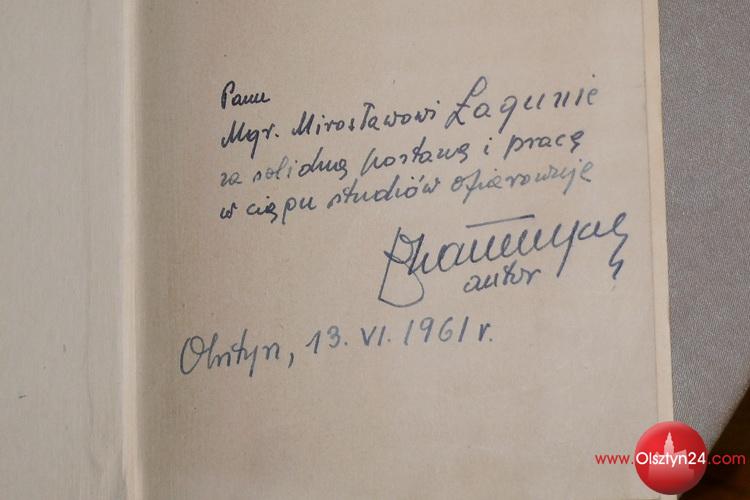 Panu
Mgr. Mirosławowi Łagunie
za solidną postawę i pracę
w ciągu studiów ofiarowuję
autor
Olsztyn, 13. VI. 1961 r.
www.Olsztyn24.com